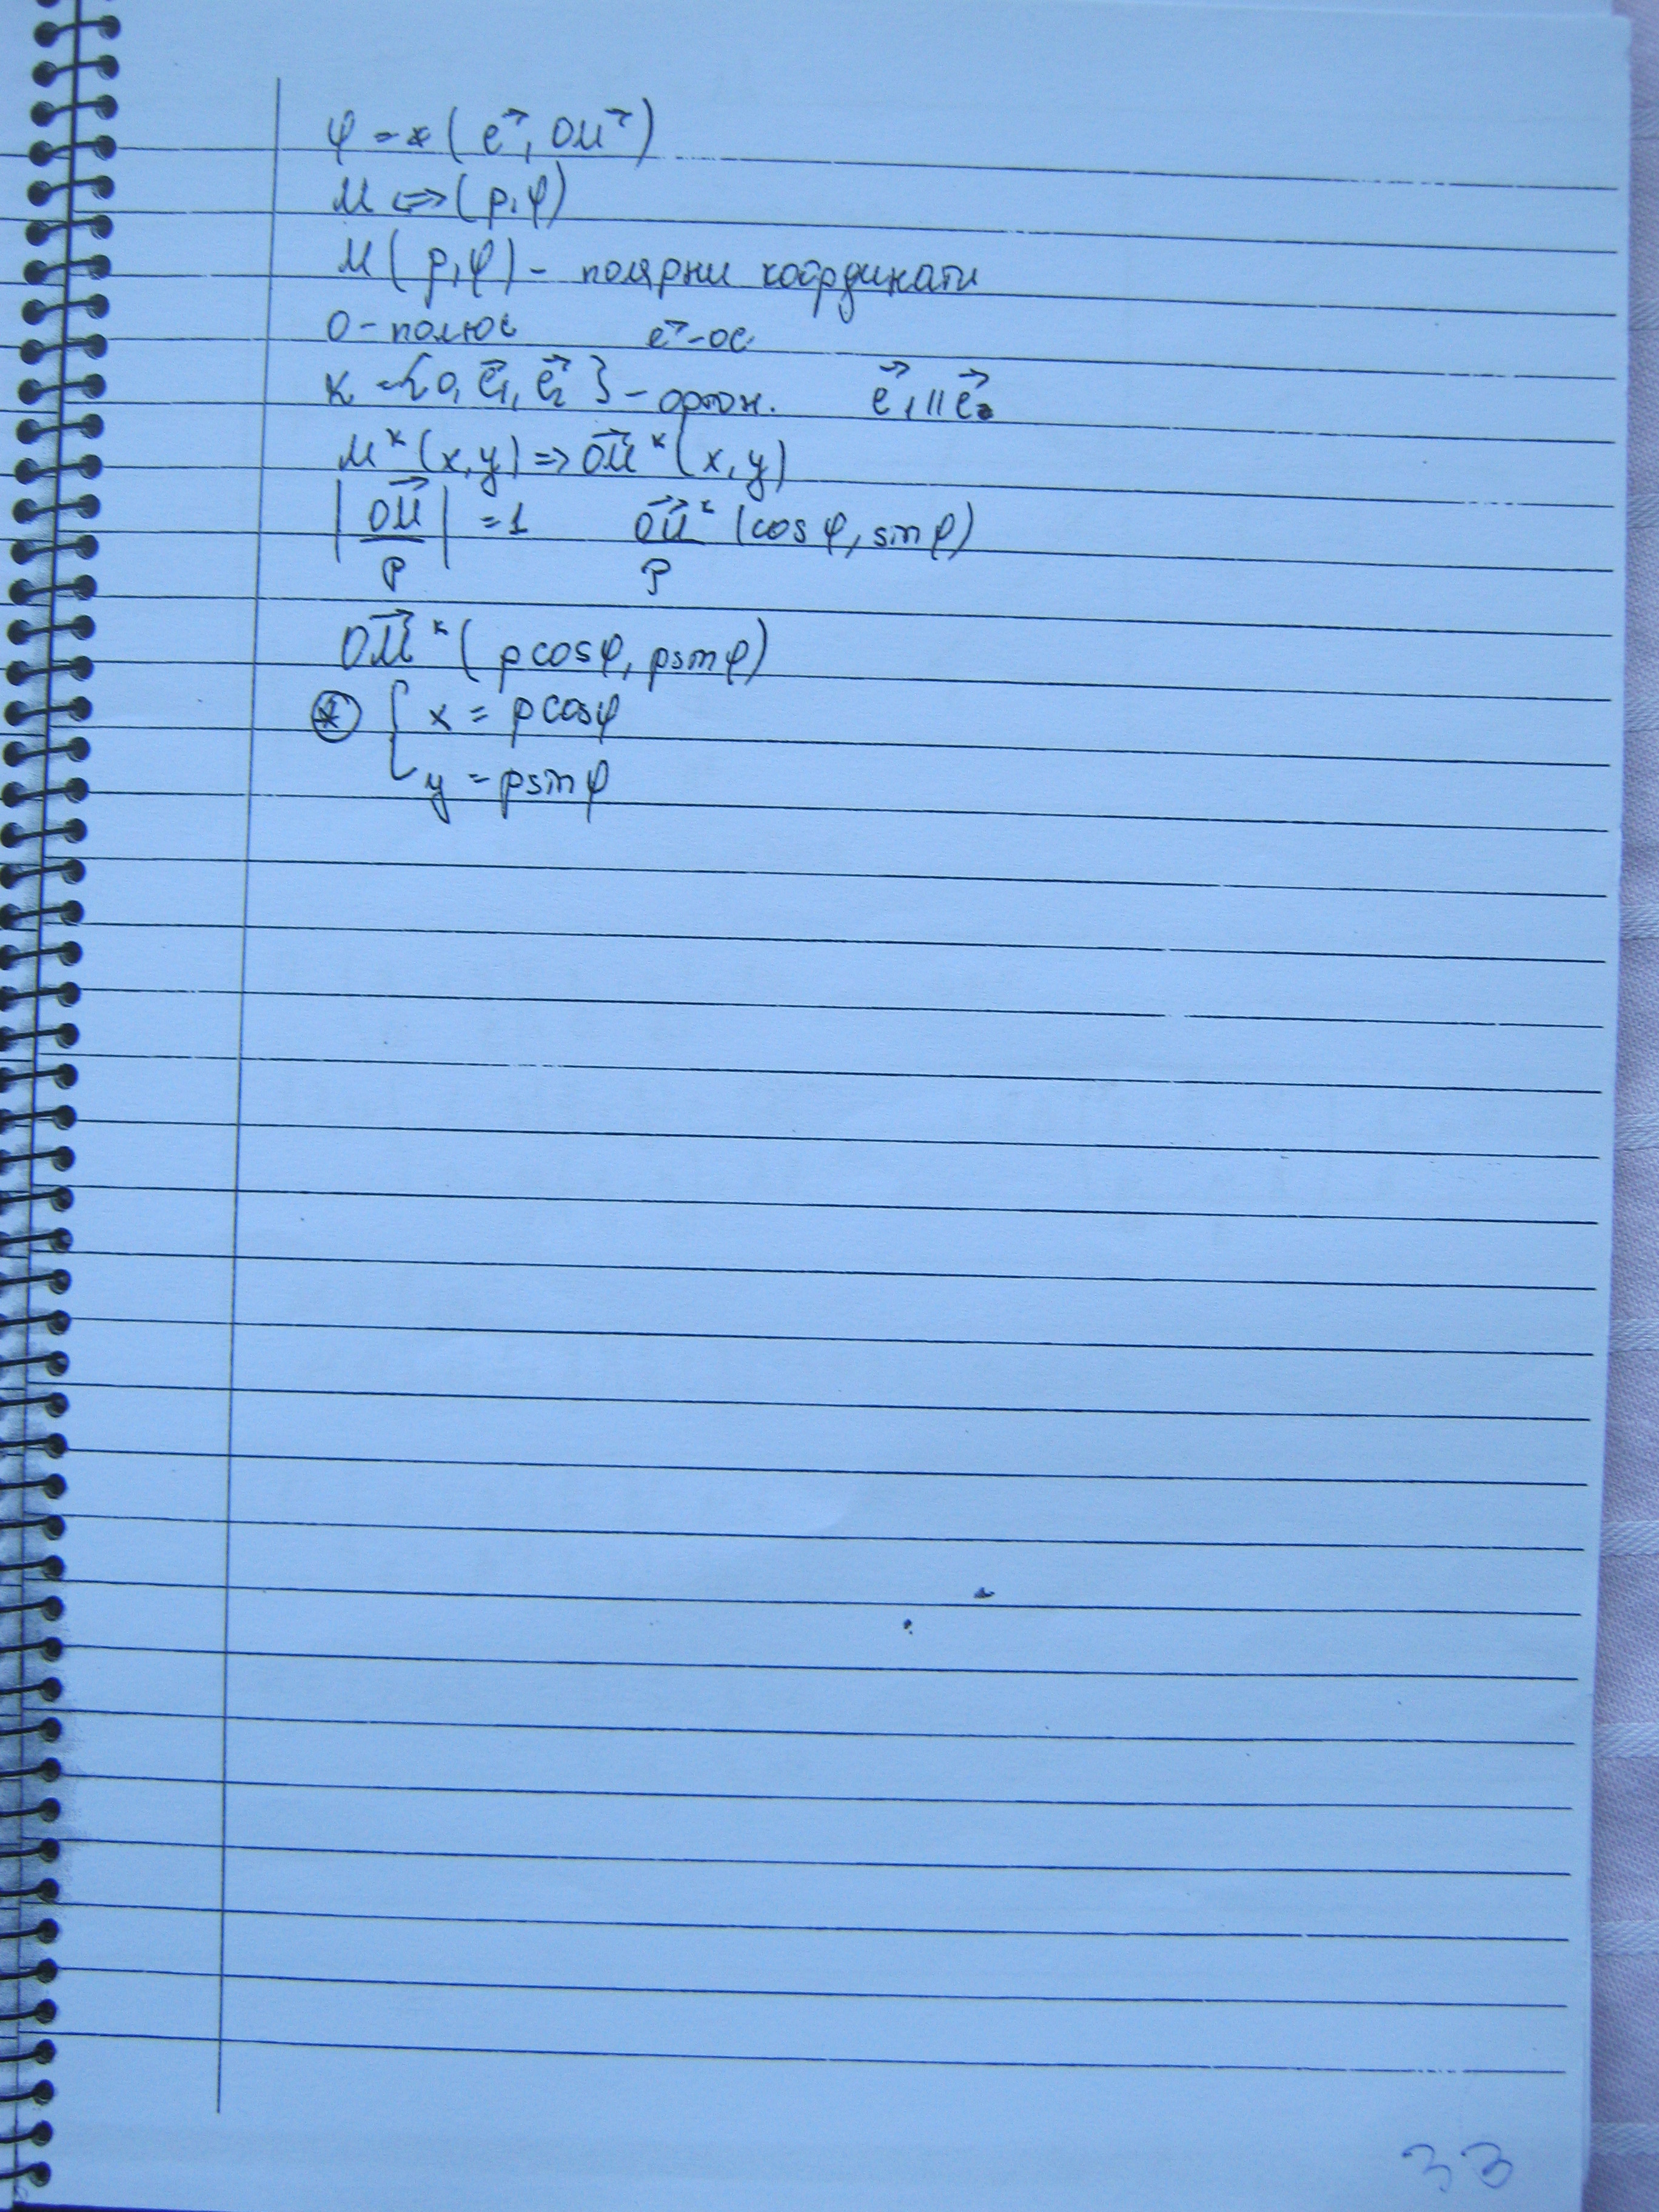 φ = ∢(e⃗, OM⃗)
M <=> (ρ, φ)
M(ρ, φ) - полярни координати
O - полюс e⃗ - ос
K = {O, e⃗₁, e⃗₂} - ортон. e⃗₁ || e⃗
Mᴷ(x, y) => OM⃗ᴷ(x, y)
|OM⃗/ρ| = 1 OM⃗ᴷ/ρ (cosφ, sinφ)
OM⃗ᴷ(ρcosφ, ρsinφ)
⊛ { x = ρcosφ
y = ρsinφ
33